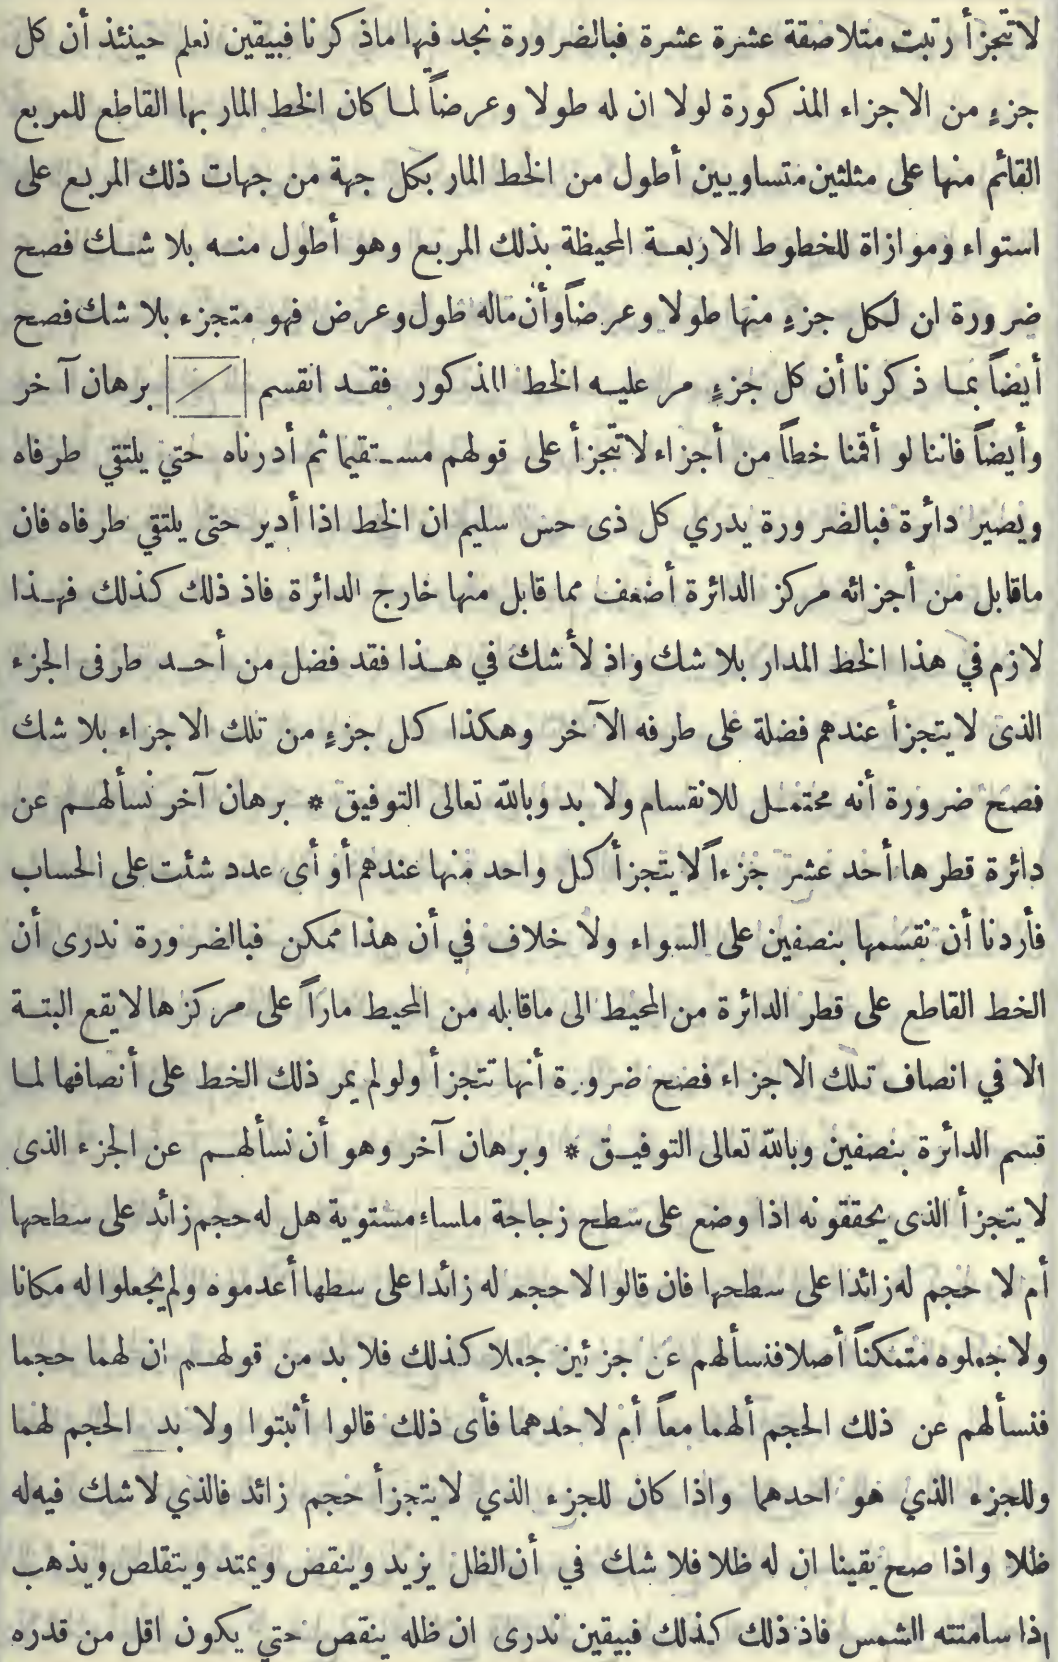 لا تتجزأ رتبت متلاصقة عشرة عشرة فبالضرورة نجد فيها ماذكرنا فبيقين نعلم حينئذ أن كل
جزءٍ من الاجزاء المذكورة لولا ان له طولا وعرضاً لما كان الخط المار بها القاطع للمربع
القائم منها على مثلثين متساويين أطول من الخط المار بكل جهة من جهات ذلك المربع على
استواء وموازاة للخطوط الاربعة المحيظة بذلك المربع وهو أطول منه بلا شك فصح
ضرورة ان لكل جزءٍ منها طولا وعرضاً وأن ماله طول وعرض فهو متجزء بلا شك فصح
أيضاً بما ذكرنا أن كل جزءٍ مر عليه الخط المذكور فقد انقسم برهان آخر
وأيضاً فاننا لو أقمنا خطاً من أجزاء لا تتجزأ على قولهم مستقيما ثم أدرناه حتي يلتقي طرفاه
ويصير دائرة فبالضرورة يدري كل ذى حس سليم ان الخط اذا أدير حتى يلتقي طرفاه فان
ماقابل من أجزائه مركز الدائرة أضعف مما قابل منها خارج الدائرة فاذ ذلك كذلك فهذا
لازم في هذا الخط المدار بلا شك واذ لا شك في هذا فقد فضل من أحد طرفى الجزء
الذى لا يتجزأ عندهم فضلة على طرفه الآخر وهكذا كل جزءٍ من تلك الاجزاء بلا شك
فصح ضرورة أنه محتمل للانقسام ولا بد وبالله تعالى التوفيق * برهان آخر نسألهم عن
دائرة قطرها أحد عشر جزءاً لا يتجزأ كل واحد منها عندهم أو أى عدد شئت على الحساب
فأردنا أن نقسمها بنصفين على السواء ولا خلاف في أن هذا ممكن فبالضرورة ندرى أن
الخط القاطع على قطر الدائرة من المحيط الى ماقابله من المحيط ماراً على مركزها لا يقع البتة
الا في انصاف تلك الاجزاء فصح ضرورة أنها تتجزأ ولو لم يمر ذلك الخط على أنصافها لما
قسم الدائرة بنصفين وبالله تعالى التوفيق * وبرهان آخر وهو أن نسألهم عن الجزء الذى
لا يتجزأ الذى يحققونه اذا وضع على سطح زجاجة ملساء مستوية هل له حجم زائد على سطحها
أم لا حجم له زائدا على سطحها فان قالوا لا حجم له زائدا على سطها أعدموه ولم يجعلوا له مكانا
ولا جعلوه متمكناً أصلا فنسألهم عن جزئين جعلا كذلك فلا بد من قولهم ان لهما حجما
فنسألهم عن ذلك الحجم ألهما معاً أم لاحدهما فأى ذلك قالوا أثبتوا ولا بد الحجم لهما
وللجزء الذي هو احدهما واذا كان للجزء الذي لا يتجزأ حجم زائد فالذي لا شك فيه له
ظلا واذا صح يقينا ان له ظلا فلا شك في أن الظل يزيد وينقص ويمتد ويتقلص ويذهب
اذا سامتته الشمس فاذ ذلك كذلك فبيقين ندرى ان ظله ينقص حتي يكون اقل من قدره